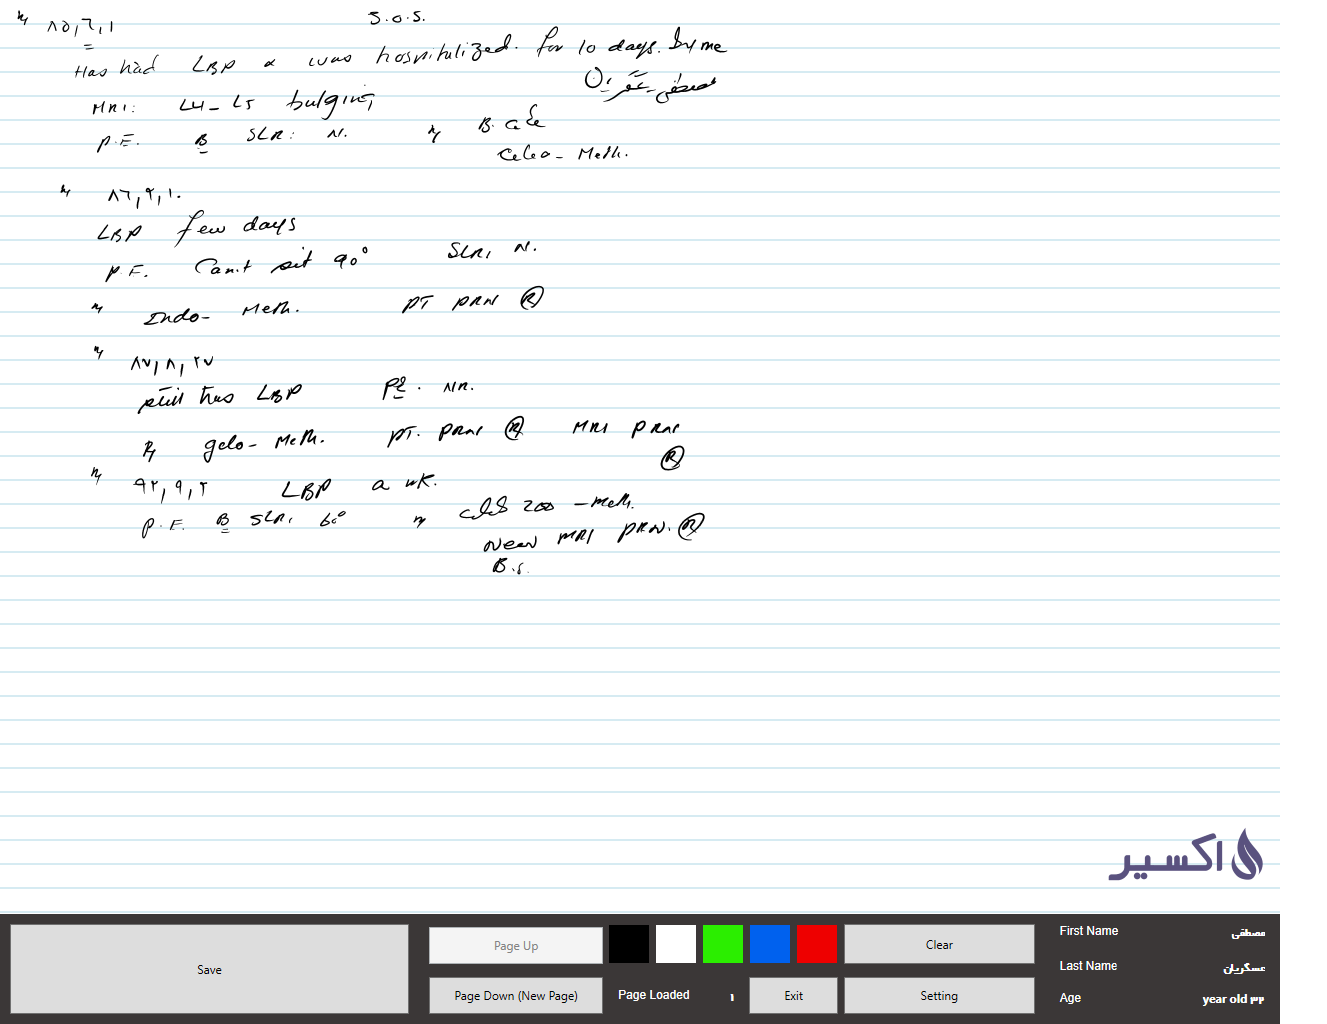 ۸۵,۶,۱ S.O.S.
Has had LBP & was hospitalized. for 10 days. by me
MRI: L4-L5 bulging
P.E. B SLR: N. B.
Celeo- Meth.
۸۶,۲,۱۰
LBP few days
P.E. Can.t sit 90° SLR, N.
Indo- Meth. PT PRN R
۸۷,۸,۲۷
still has LBP PE. NR.
gelo- Meth. PT. PRN R MRI PRN
R
۹۲,۹,۲ LBP a wk.
P.E. B SLR, 60° 200 - Meth.
New MRI PRN. R
B.S.
اکسیر
Save
Page Up
Clear
Page Down (New Page)
Page Loaded ۱
Exit
Setting
First Name مصطفی
Last Name عسگریان
Age year old ۳۲